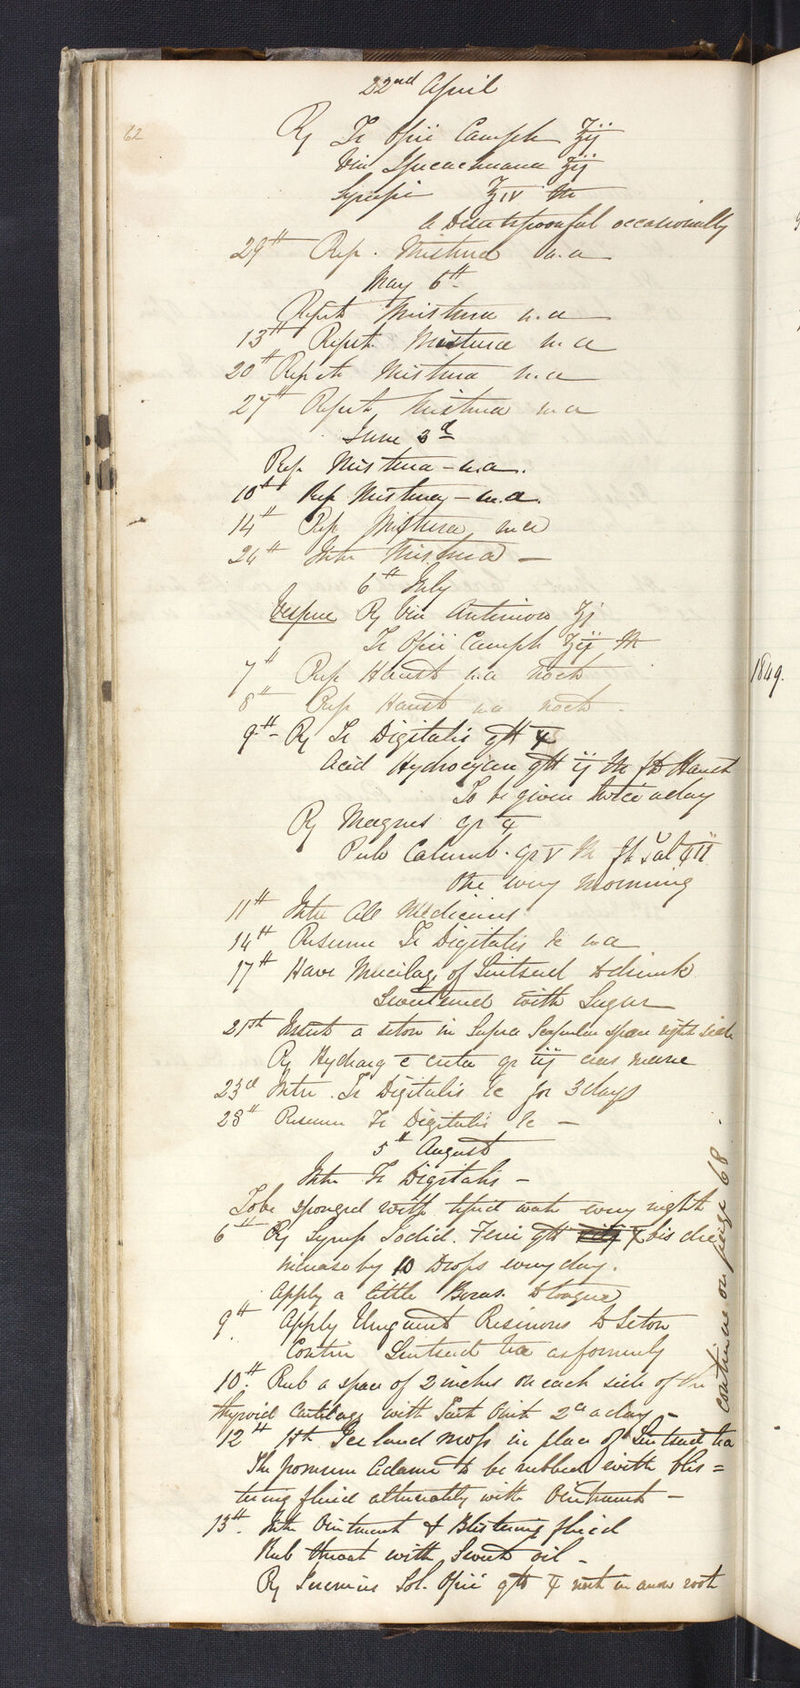 62
22nd April
Rx Tr Opii Camph ʒij
Vin Ipecacuanna ʒij
Syrupi ʒiv m
a Desertspoonful occasionally
29th Rep. Mistura u.a
May 6th
Repet Mistura u.a
13th Repet. Mistura u a
20th Repet Mistura u.a
27th Repet Mistura u.a
June 3d
Rep. Mistura - u.a.
10th Rep Mistura - u.a.
14th Rep Mistura u a
24th Intr Mistura -
6th July
Vespere Rx Vin Antimon ʒj
Tr Opii Camph ʒij m
7th Rep Haust u.a noct
8th Rep Haust u a noct.
9th - Rx Tr Digitalis gtt x
Acid Hydrocyan gtt ij m ft Haust
To be given twice a day
Rx Magnes gr x
Pulv Calumb. gr v m ft
One every morning
11th Intr all Medicines
14th Resume Tr Digitalis &c u a
17th Have Mucilage of Lintseed to drink
Sweetened with Sugar
21th Insert a seton in Supra Scapular space right side
Rx Hydrarg c creta gr iij cras mane
23rd Intr. Tr Digitalis &c for 3 days
28th Resume Tr Digitalis &c -
5th August
Intr Tr Digitalis -
To be sponged with tepid water every night
6th Rx Syrup Iodid. Ferri gtt x bis die
increase by 10 Drops every day.
Apply a little Borax to tongue
9th Apply Unguent Resinous to Seton
Contin Lintseed tea as formerly
10th. Rub a space of 2 inches on each side of the
thyroid Cartilage with Tart Oint 2ce a day -
12th Hth Iceland moss in place of Lintseed tea
The pomum Adami to be rubbed with blis=
tering fluid alternately with Ointment -
13th. Intr Ointment & Blistering fluid
Rub throat with Sweet oil -
Rx Sol. Opii gtt x noct
continue on page 68
1849.